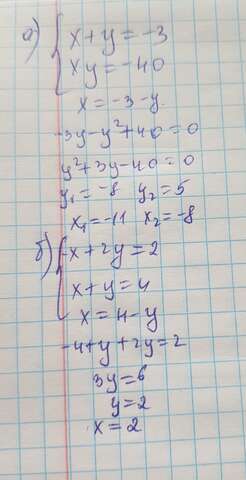 а) { x + y = -3
xy = -40
x = -3 - y
-3y - y² + 40 = 0
y² + 3y - 40 = 0
y₁ = -8  y₂ = 5
x₁ = -11  x₂ = -8
б) { -x + 2y = 2
x + y = 4
x = 4 - y
-4 + y + 2y = 2
3y = 6
y = 2
x = 2